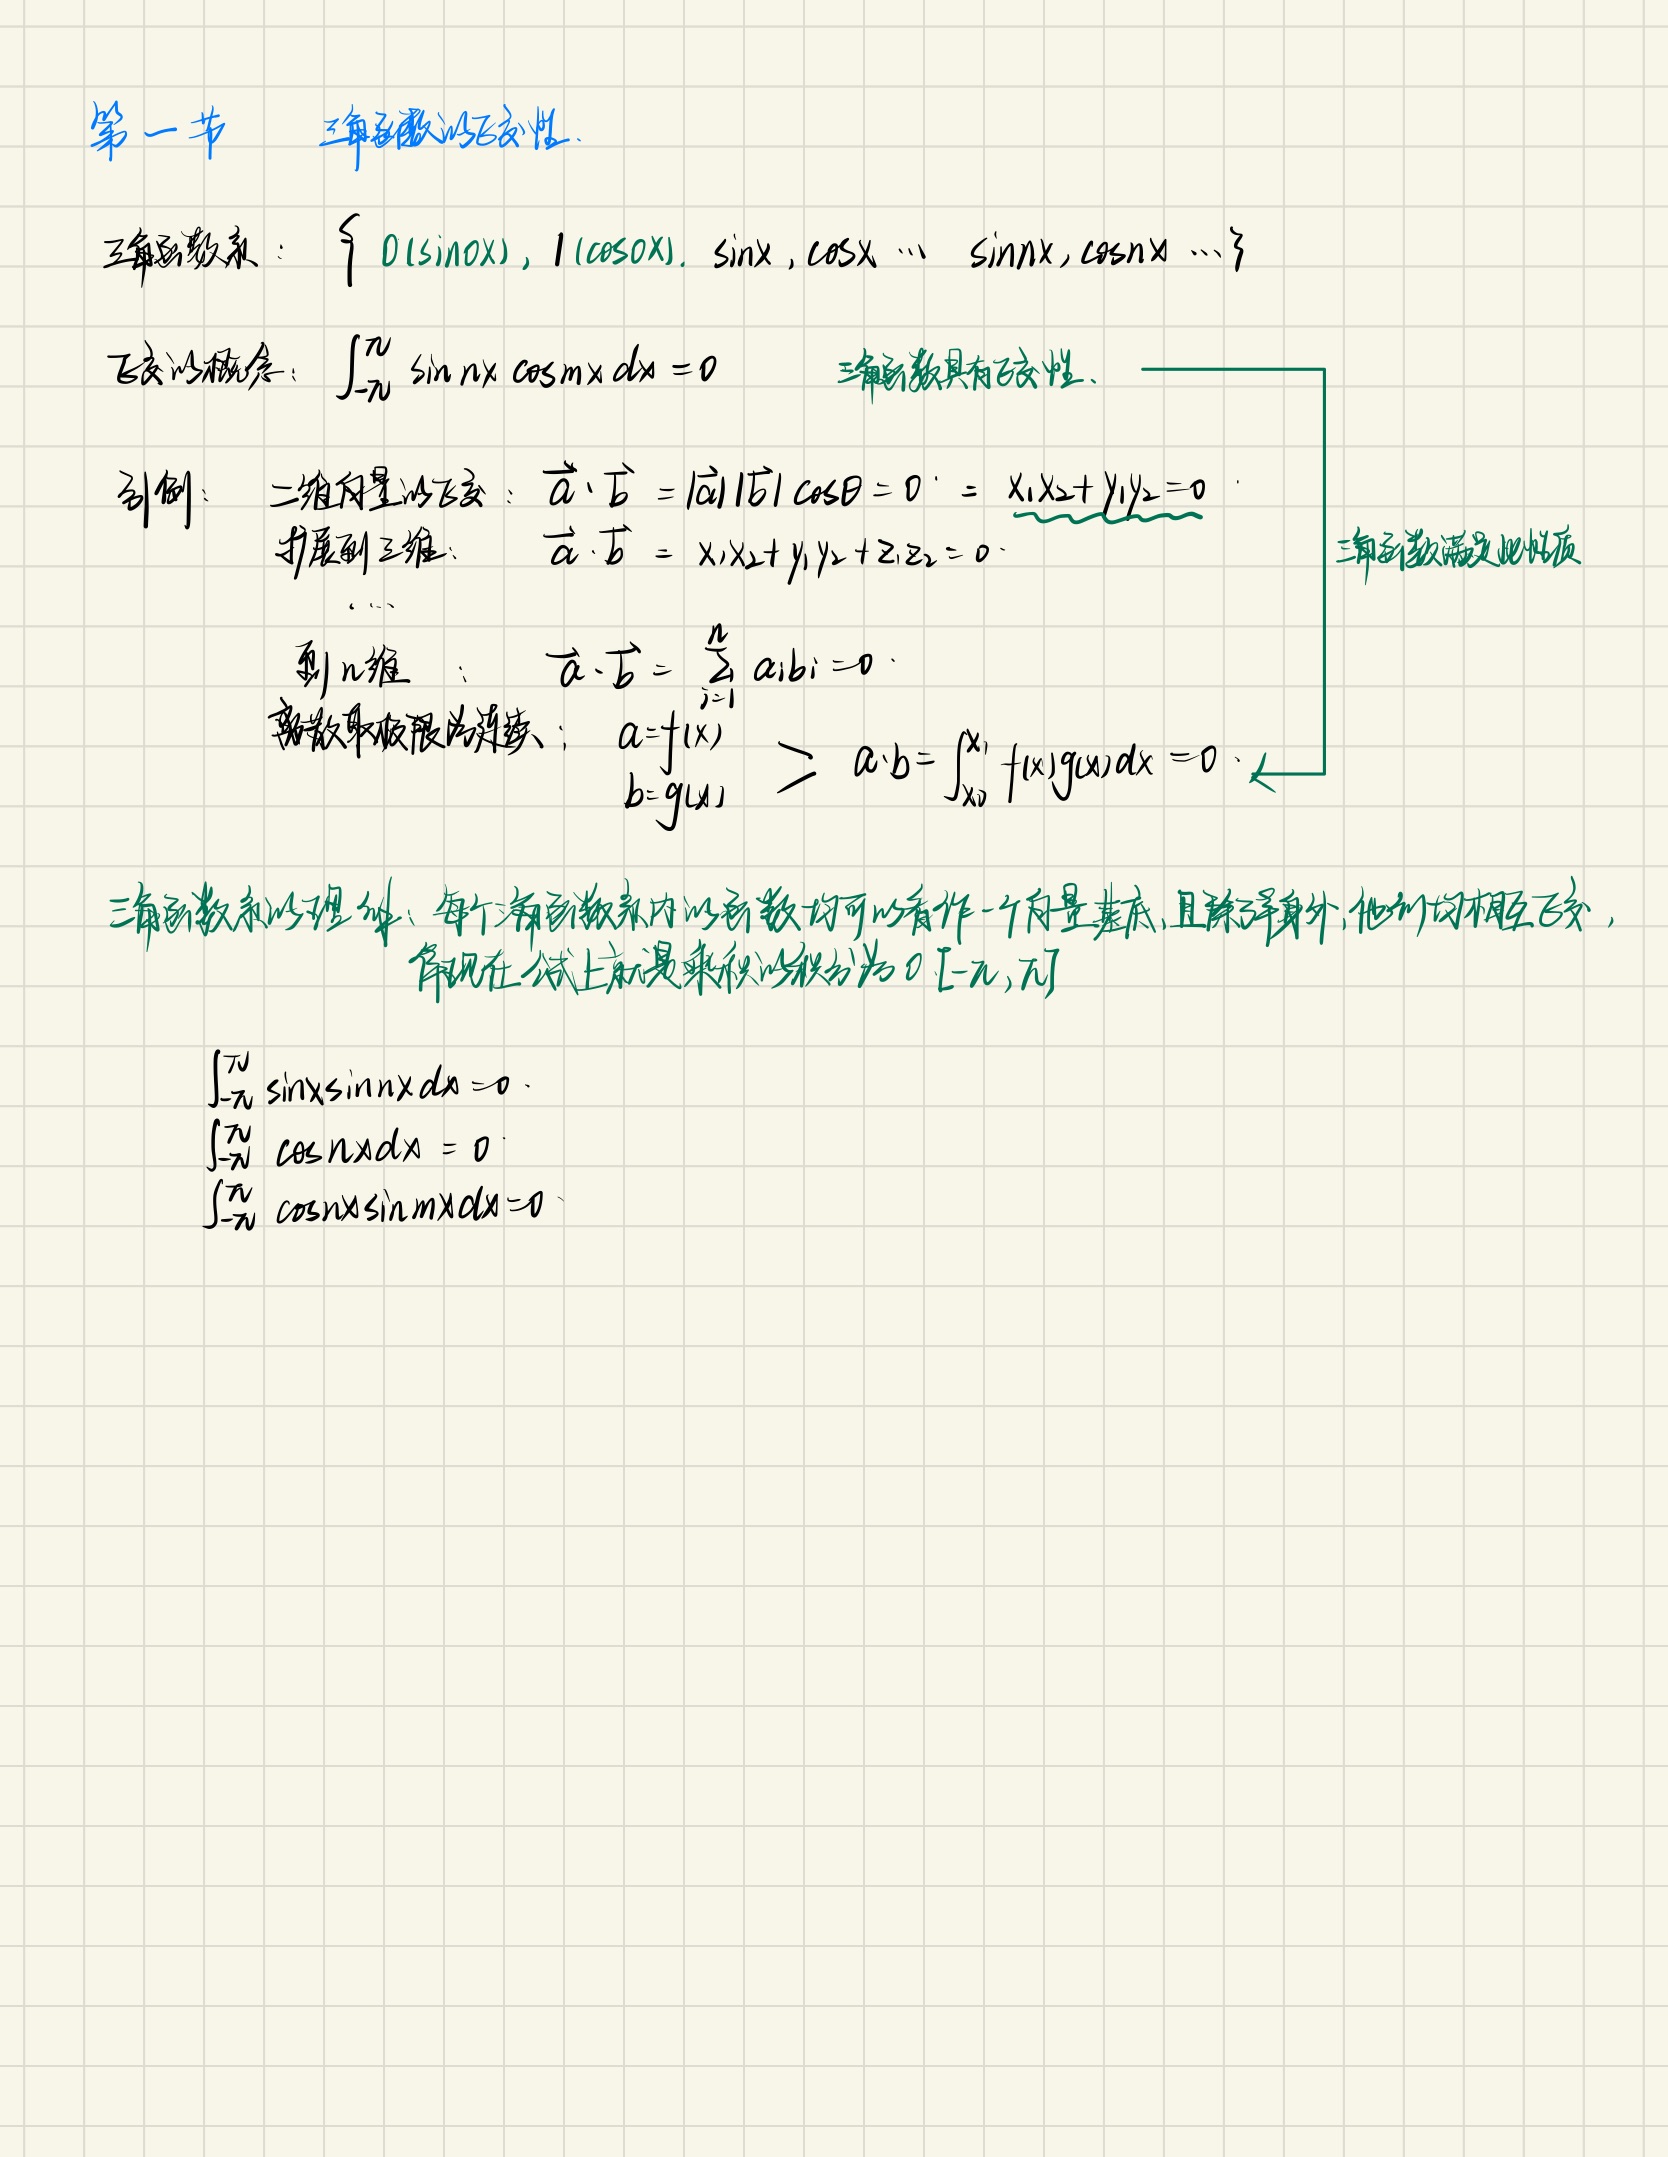 第一节 三角函数的正交性.
三角函数系: { 0(sin0x), 1(cos0x), sinx, cosx … sinnx, cosnx …}
正交的概念: ∫_{-π}^{π} sin nx cos mx dx = 0 三角函数具有正交性.
引例: 二维向量的正交: a⃗·b⃗ = |a⃗||b⃗| cosθ = 0 = x₁x₂ + y₁y₂ = 0
扩展到三维: a⃗·b⃗ = x₁x₂ + y₁y₂ + z₁z₂ = 0.
三角函数满足此性质
...
到n维: a⃗·b⃗ = ∑_{i=1}^{n} aᵢbᵢ = 0.
离散取极限为连续: a=f(x)
b=g(x) > a·b = ∫_{x₀}^{x₁} f(x)g(x)dx = 0.
三角函数系的理解: 每个三角函数系内的函数均可以看作一个向量基底,且除了自身外,他们均相互正交,
体现在公式上就是乘积的积分为0 [-π,π]
∫_{-π}^{π} sinx sinnx dx = 0.
∫_{-π}^{π} cosnx dx = 0
∫_{-π}^{π} cosnx sinmx dx = 0.